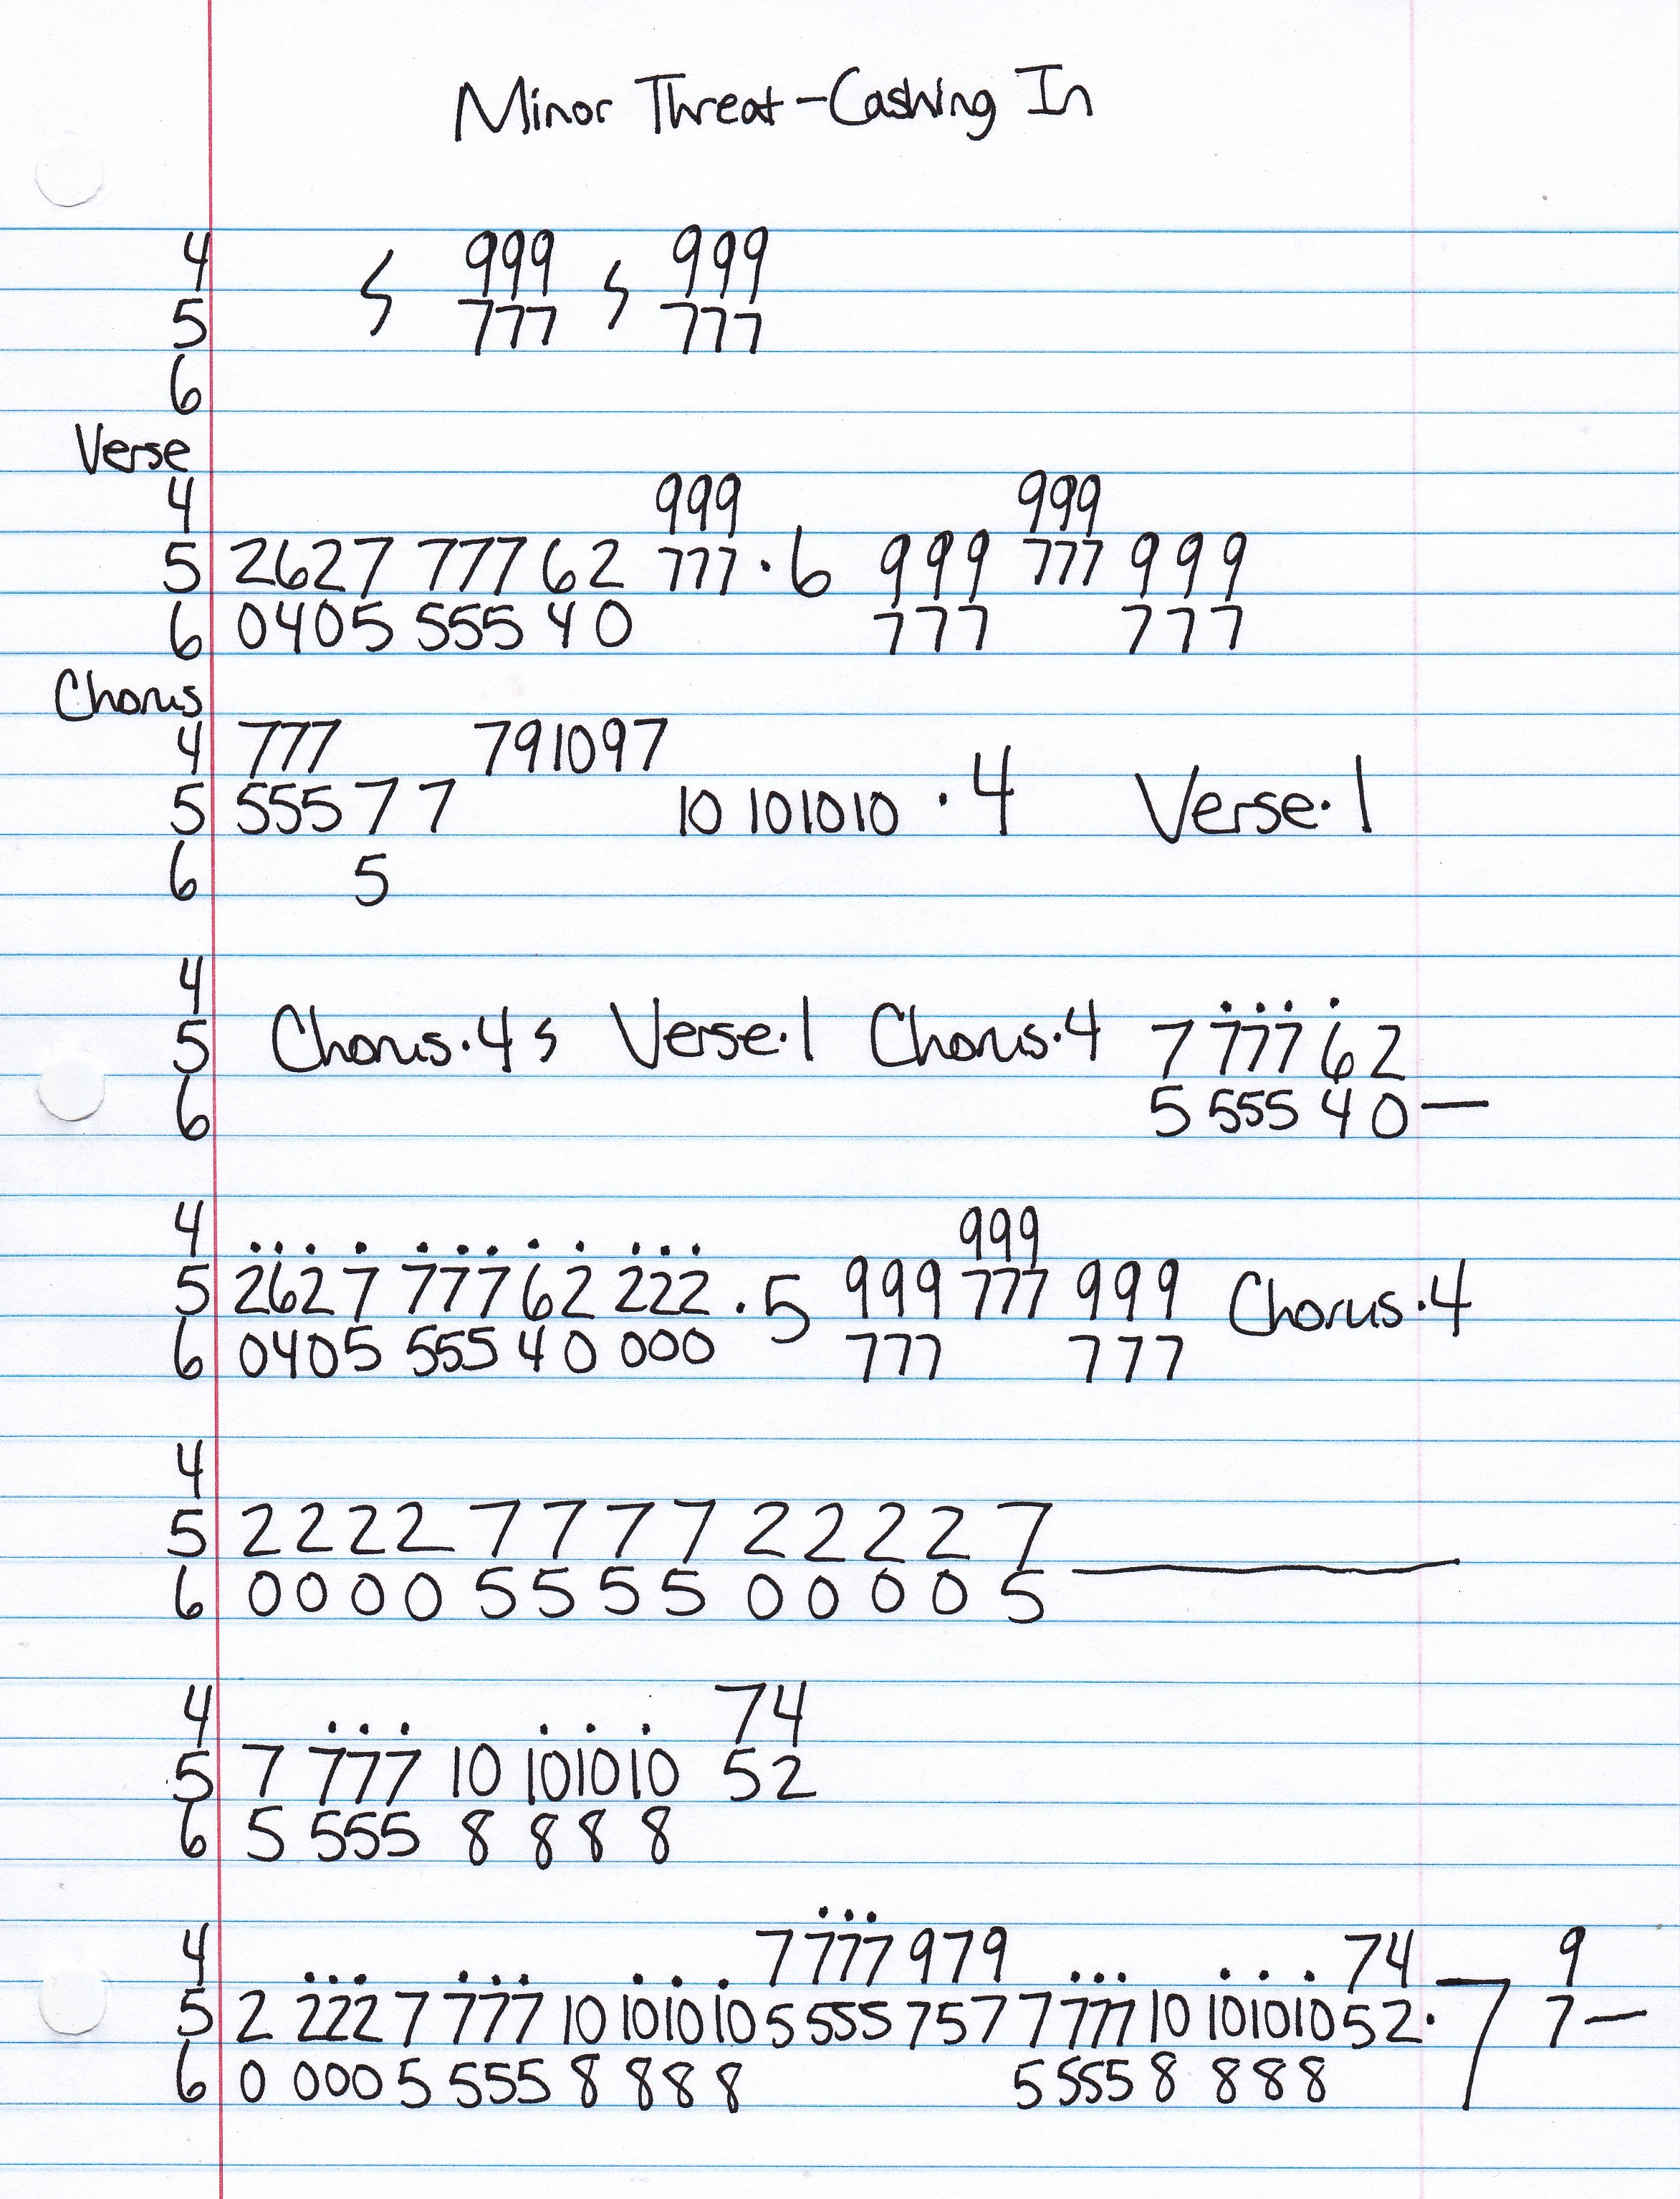 Minor Threat - Cashing In
4 𝄽 999 𝄽 999
5 777 777
6
Verse
4 999 999
5 2627 777 62 777 · 6 999 777 999
6 0405 555 40 777 777
Chorus
4 777 791097
5 555 7 7 10 101010 · 4 Verse · 1
6 5
4
5 Chorus · 4 𝄽 Verse · 1 Chorus · 4 7 777 62
6 5 555 40—
4 999
5 2627 777 62 222 · 5 999 777 999 Chorus · 4
6 0405 555 40 000 777 777
4
5 2222 7777 2222 7
6 0000 5555 0000 5 —
4 74
5 7 777 10 101010 52
6 5 555 8 888
4 7 777 979 74 9
5 2 222 7 777 10 101010 5 555 757 7 777 10 101010 52 · 7 7—
6 0 000 5 555 8 888 5 555 8 888